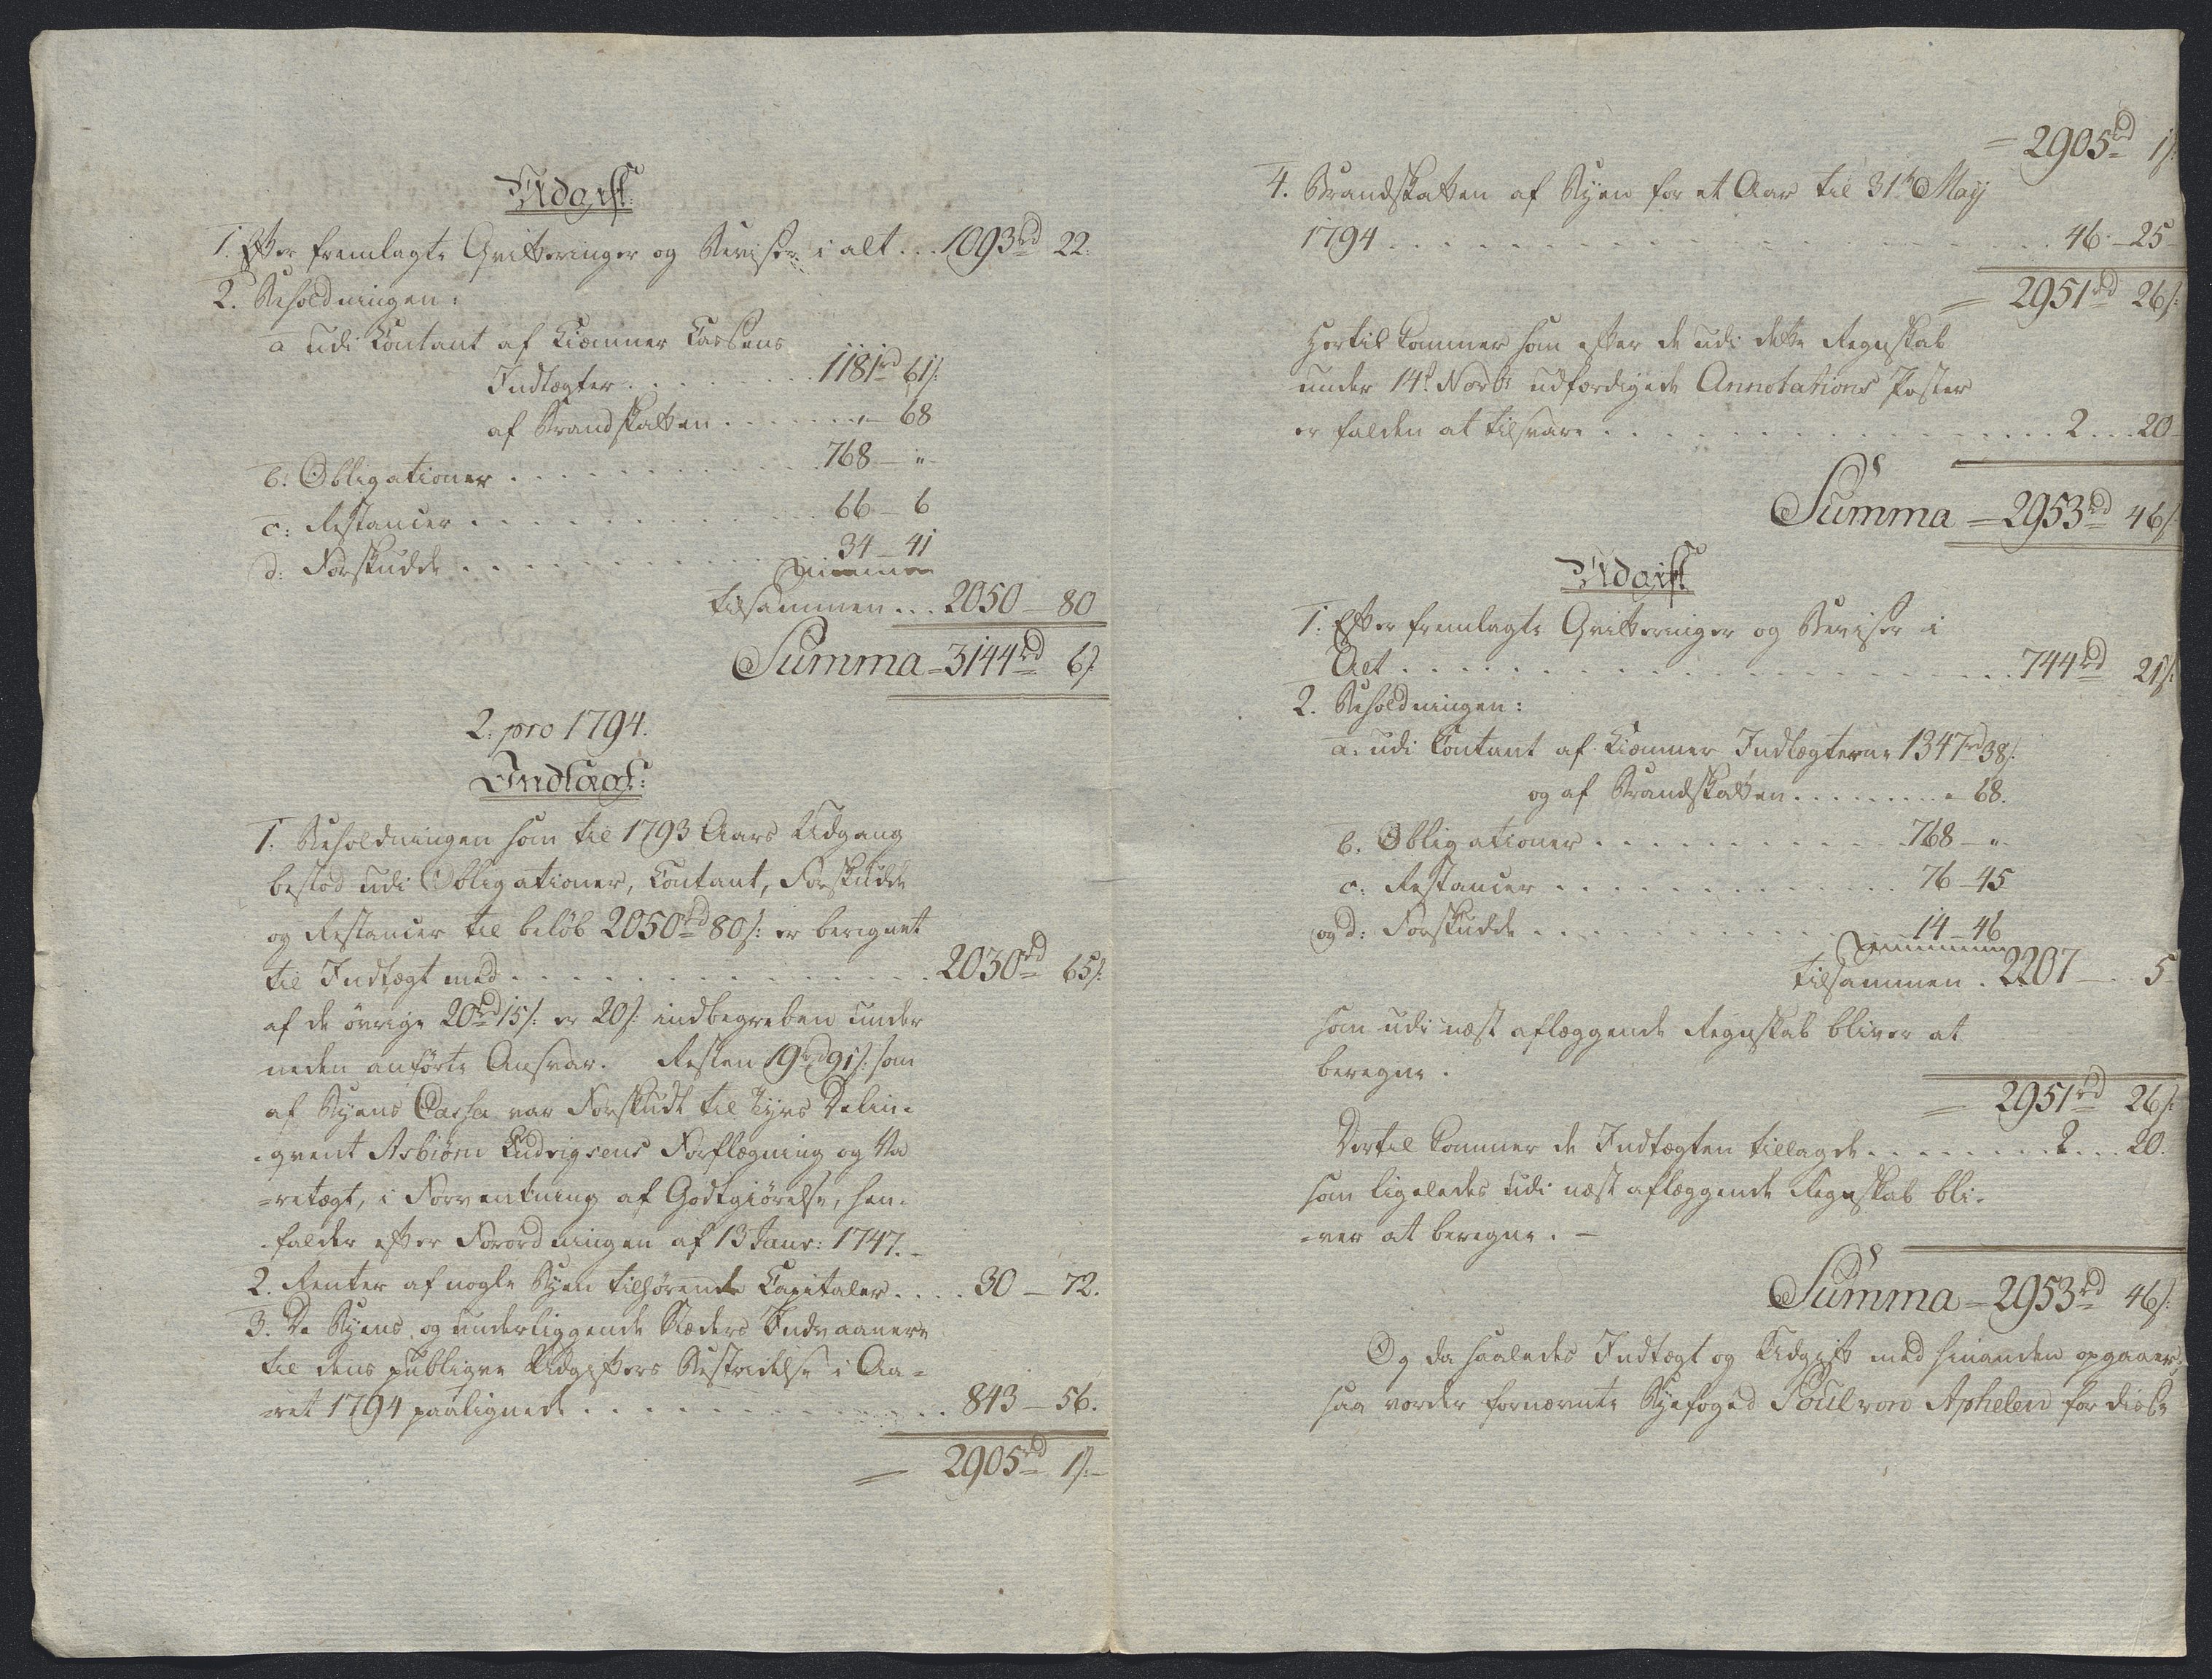 Udgift:
1. Efter fremlagte Qvitteringer og Beviser i alt . . . 1093rd 22.
2. Beholdningen:
a udi Contant af Kiæmner Cassens
Indtægter . . . . . . . . 1181rd 61s:
af Brandskatten . . . . . . „ — 68
b: Obligationer . . . . . . . . . . 768 — „ —
c: Restancer . . . . . . . . . . . 66 — 6
d: Forskudde . . . . . . . . . . . 34 — 41
tilsammen . . . 2050 — 80
Summa = 3144rd 6s
2. pro 1794.
Indtægt:
1. Beholdningen som til 1793 Aars Udgang
bestod udi Obligationer, Contant, Forskudde
og Restancer til beløb 2050rd 80s: er beregnet
til Indtægt med . . . . . . . . . . . . . . 2030rd 65s:
af de øvrige 20rd 15s: er 20s: indbegreben under
neden anførte Ansvar. Resten 19rd 91s: som
af Byens Cassa var Forskudt til Tyvs Delin-
-qvent Asbiørn Ludvigsens Forflægning og Va
=retægt, i Forventning af Godtgiørelse, hen-
-falder efter Forordningen af 13 Janr: 1747. -
2. Renter af nogle Byen tilhørende Capitaler . . . . 30 — 72.
3. De Byens og underliggende Stæders Indvaanere
til dens publiqve Udgifters Bestridelse i Aa=
=ret 1794 paalignede . . . . . . . . . . . . . 843 — 56.
= 2905rd 1s: —
= 2905rd 1s:
4. Brandskatten af Byen for et Aar til 31te May
1794 . . . . . . . . . . . . . . . . . . . . . . . 46 — 25
= 2951rd 26s:
Hertil kommer som efter de udi dette Regnskab
under 14d Novbr udfærdigede Annotations Poster
er falden at tilsvare . . . . . . . . . . . . . . . . 2 . . . 20
Summa = 2953rd 46s
Udgift
1. Efter fremlagte Qvitteringer og Beviser i
Alt . . . . . . . . . . . . . . . . . . . . . 744rd 21s:
2. Beholdningen:
a. udi Contant af Kiæmner Indtægterne 1347rd 38s:
og af Brandskatten . . . . . . . „ 68.
b. Obligationer . . . . . . . . . . . 768 — „ —
c. Restancer . . . . . . . . . . . . . 76 — 45
og d: Forskudde . . . . . . . . . . . . 14 — 46
tilsammen . 2207 — . . 5
som udi næst aflæggende Regnskab bliver at
beregne.
= 2951rd 26s:
Dertil kommer de Indtægten tillagde . . . . . . . . 2 . . . 20.
som ligeledes udi næst aflæggende Regnskab bli-
=ver at beregne. —
Summa = 2953rd 46s:
Og da saaledes Indtægt og Udgift med hinanden opgaaer,
saa vorder fornævnte Byefoged Poul von Aphelen for disse